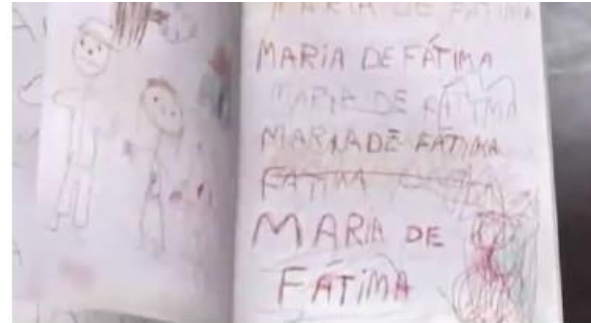 MARIA DE FATIMA
MARIA DE FÁTIMA
MARIA DE FATIMA
MARIA DE FATIMA
FATIMA
MARIA DE
FÁTIMA